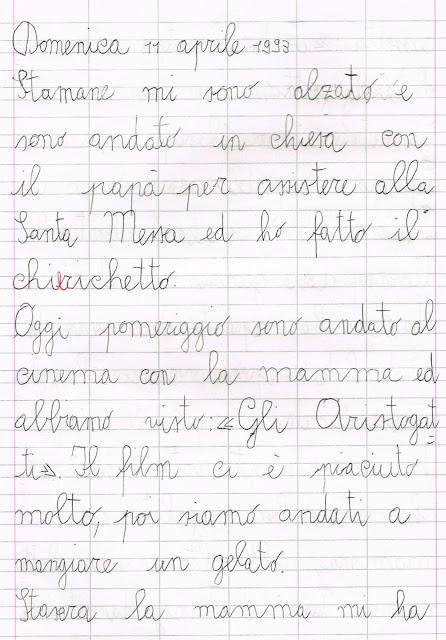 Domenica 11 aprile 1993
Stamane mi sono alzato e
sono andato in chiesa con
il papà per assistere alla
Santa Messa ed ho fatto il
chierichetto.
Oggi pomeriggio sono andato al
cinema con la mamma ed
abbiamo visto: «Gli Aristogat=
ti». Il film ci è piaciuto
molto, poi siamo andati a
mangiare un gelato.
Stasera la mamma mi ha